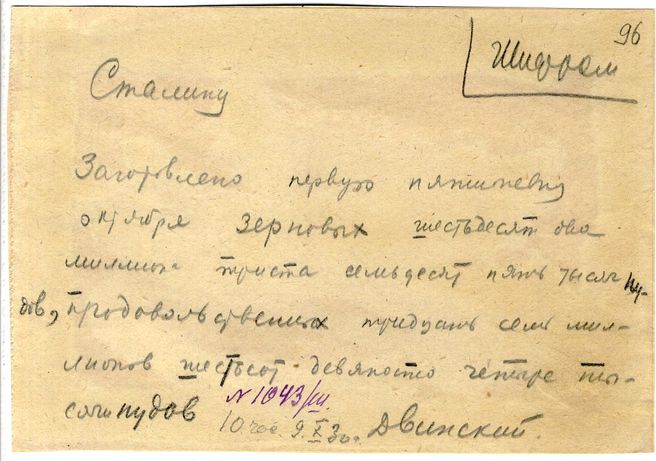 96
Шифром
Сталину
Заготовлено первую пятидневку
октября зерновых шестьдесят два
миллиона триста семьдесят пять тысяч пу-
дов, продовольственных тридцать семь мил-
лионов шестьсот девяносто четыре ты-
сячи пудов
N 1043/ш
10 час. 9.X.30г. Двинский.